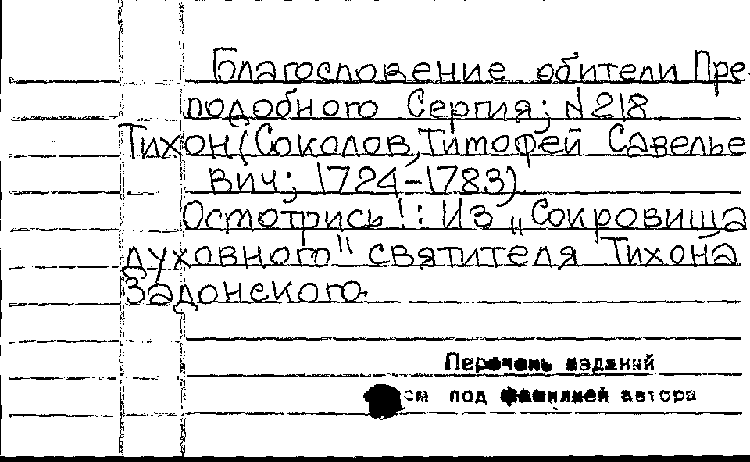 Благословение обители Пре
подобного Сергия; N218
Тихон (Соколов, Тимофей Савелье
вич; 1724-1783)
Осмотрись!: Из „Сокровища
духовного" святителя Тихона
Задонского.
Перечень изданий
см под фамилией автора